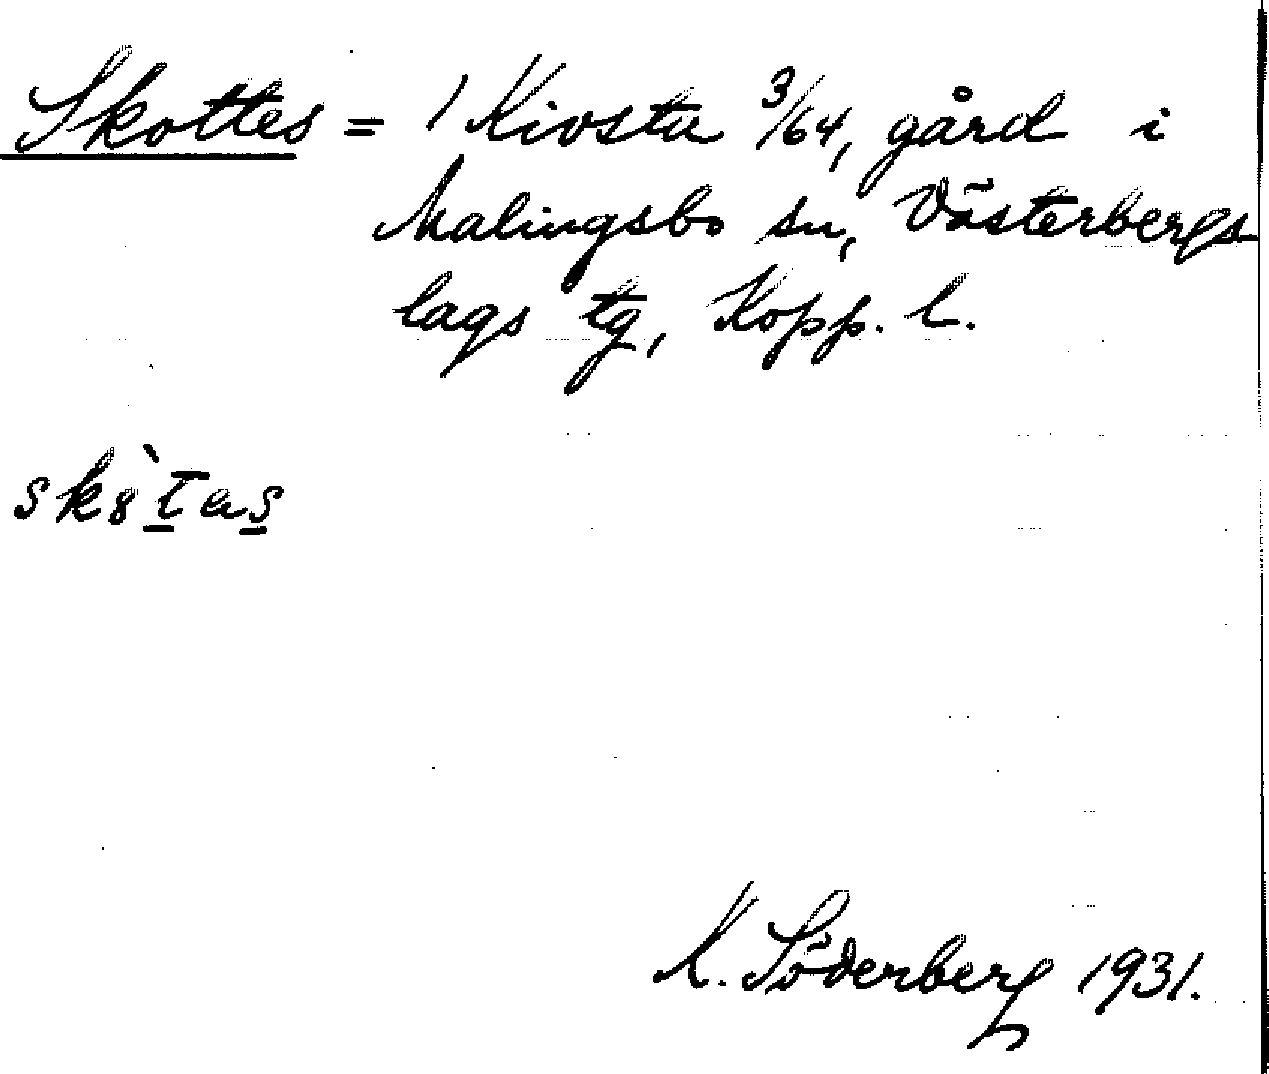 Skottes = 1 Kivsta 3/64, gård i
Malingsbo sn, Västerbergs
lags tg, Kopp. l.
sk8̀t̲as̲
K. Söderberg 1931.